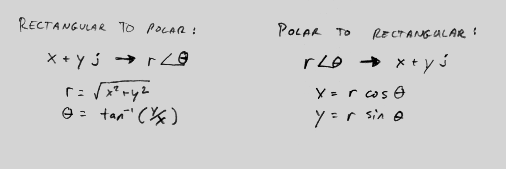 RECTANGULAR TO POLAR:
x + y j → r∠θ
r = √x² + y²
θ = tan⁻¹ (y/x)
POLAR TO RECTANGULAR:
r∠θ → x + y j
x = r cos θ
y = r sin θ